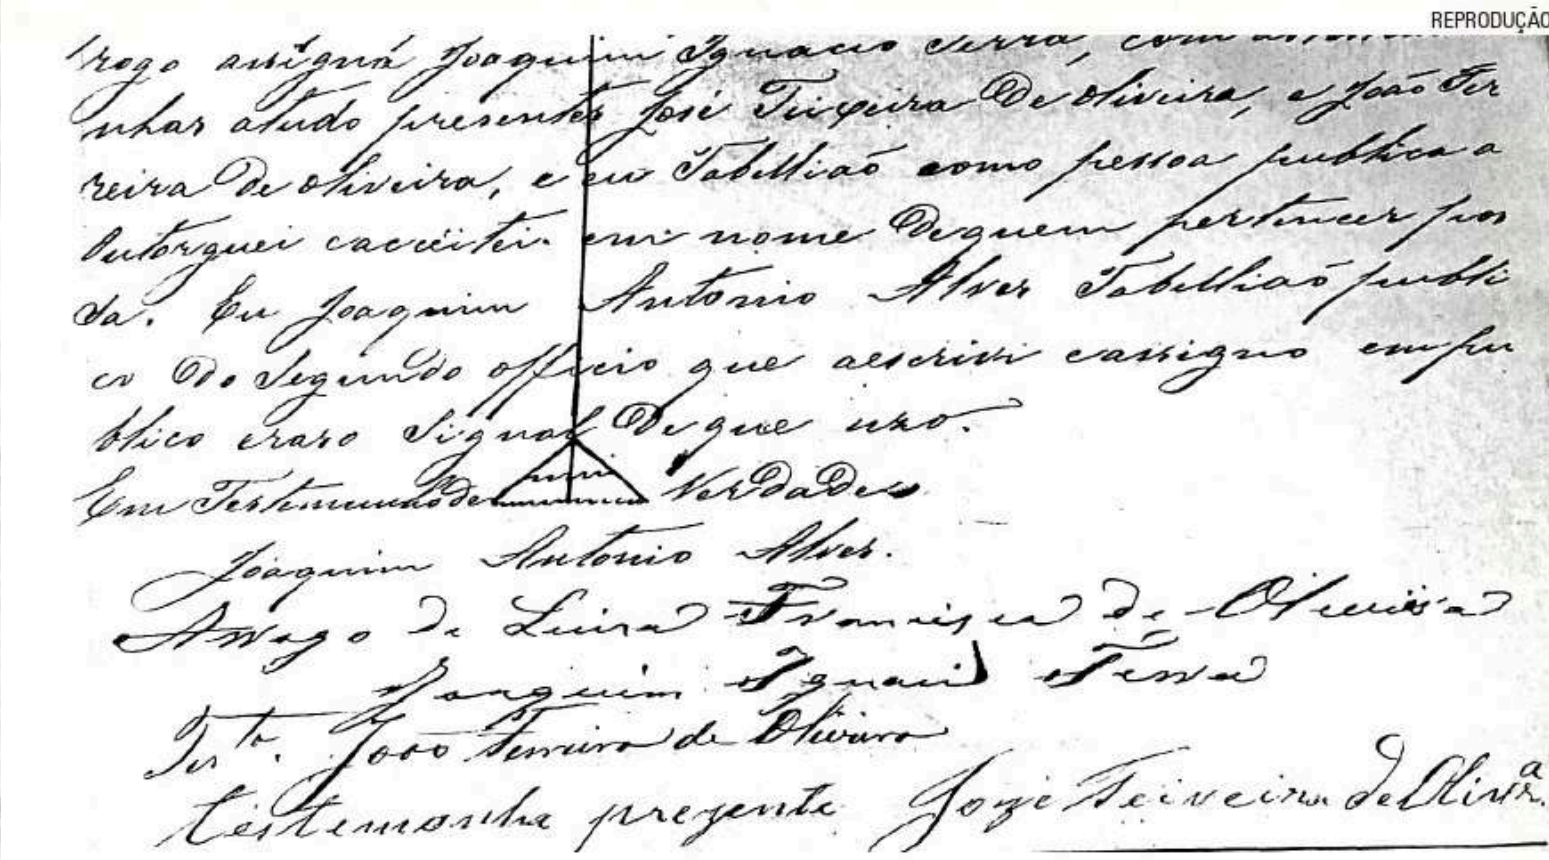 REPRODUÇÃO
rogo assigna Joaquim Ignacio Serra, com
nhas atudo presentes José Teixeira De Oliveira, e João Fer
reira De Oliveira, e eu Tabelliaõ como pessoa publica a
Outorguei caceitei em nome Dequem pertencer pos
sa. Eu Joaquim Antonio Alves Tabelliaõ publi
co Do Segundo officio que aescrivi eassigno empu
blico eraso Signal De que uzo.
Em Testemunho de Verdade
Joaquim Antonio Alves.
Arrogo de Luiza Francisca de Oliveira
Joaquim Ignacio Serra
Testa. João Ferreira de Oliveira
testemonha prezente Joze Teixeira de Olivra.